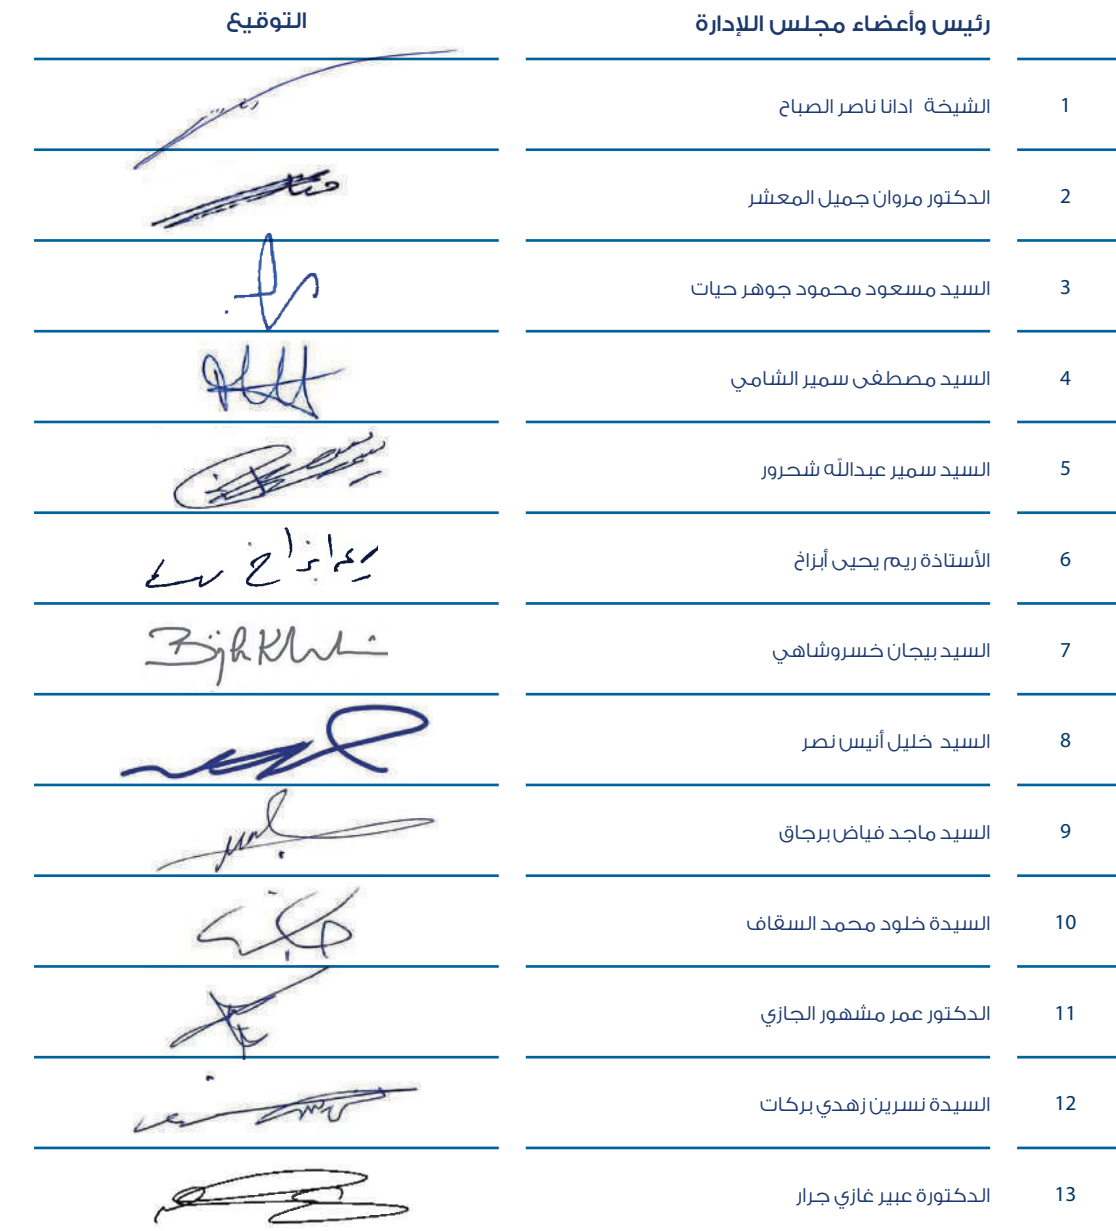 رئيس وأعضاء مجلس اللإدارة التوقيع
1 الشيخة ادانا ناصر الصباح
2 الدكتور مروان جميل المعشر
3 السيد مسعود محمود جوهر حيات
4 السيد مصطفى سمير الشامي
5 السيد سمير عبداللّه شحرور
6 الأستاذة ريم يحيى أبزاخ
7 السيد بيجان خسروشاهي
8 السيد خليل أنيس نصر
9 السيد ماجد فياض برجاق
10 السيدة خلود محمد السقاف
11 الدكتور عمر مشهور الجازي
12 السيدة نسرين زهدي بركات
13 الدكتورة عبير غازي جرار